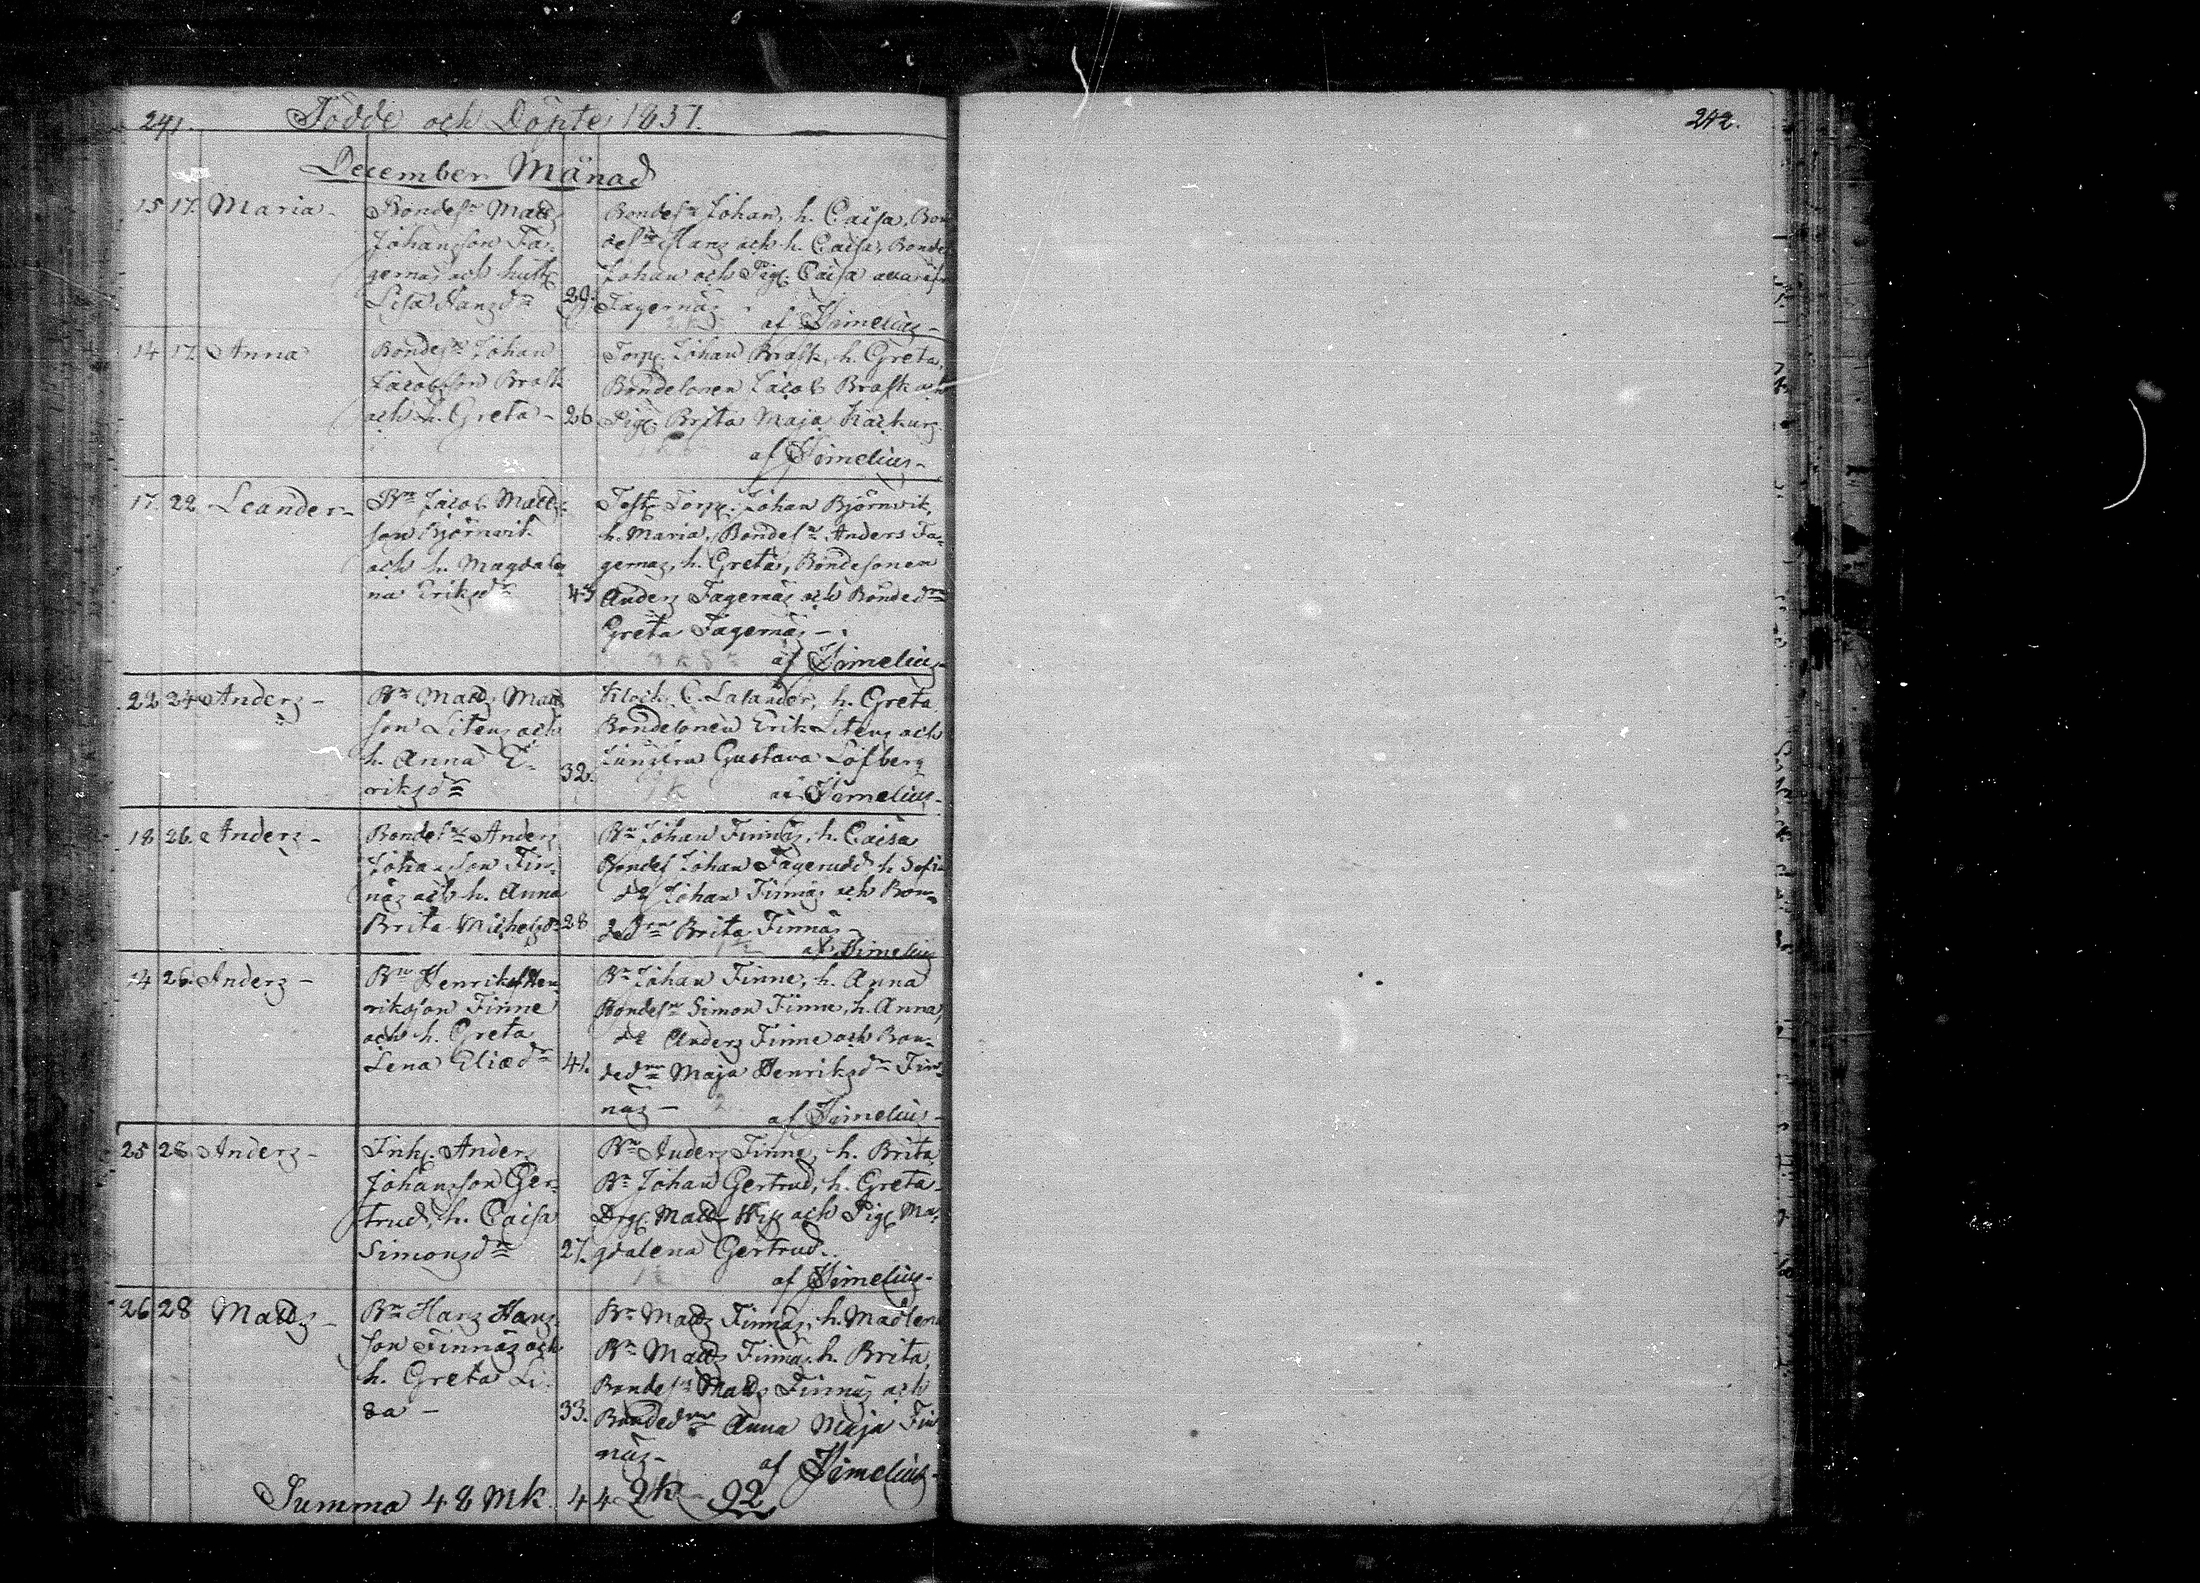 241. Födde och Döpte 1837.
242.
December Månad
15 17. Maria -
Bondes. Matts
Johansson Fa-
gernäs och hust.
Lisa Hansdr 29.
Bondes. Johan, h. Caisa, Bon
des. Hans och h. Caisa, Bondes
Johan och Pig. Caisa
Fagernäs
af Simelius -
14 17. Anna
Bondes. Johan
Jacobsson Brask
och h. Greta - 26
Torp. Johan Brask, h. Greta,
Bondesonen Jacob Brask och
Pig. Brita Maja
af Simelius -
17. 22. Leander -
Bn Jacob Matts-
son Björnvik
och h. Magdale
na Eriksdr 43
Torp. Johan Björnvik,
h. Maria, Bondes. Anders Fa-
gernäs, h. Greta, Bondesonen
Anders Fagernäs och Bondedn
Greta Fagernäs -
af Simelius -
22 24 Anders -
Bn Matts Matts
son Litens och
h. Anna E-
riksdr 32.
Klock. C. Lalander, h. Greta
Bondesonen Erik Litens och
Jungfru Gustava Löfberg
af Simelius -
18 26. Anders -
Bondes. Anders
Johansson Fin-
näs och h. Anna
Brita Michelsdr 28
Bn Johan Finnäs, h. Caisa
Bondes Johan Fagerudd h. Sofia
do Johan Finnäs och Bon-
dedrn Brita Finnäs -
af Simelius
14 26. Anders -
Bn Henrik Hen
riksson Finne
och h. Greta
Lena Eliædr 41.
Bn Johan Finne, h. Anna
Bondesn Simon Finne, h. Anna,
do Anders Finne och Bon-
dedrn Maja Henriksdr Fin-
näs -
af Simelius -
25 28 Anders -
Inh. Anders
Johansson Ger-
trud, h. Caisa
Simonsdr 27.
Bn Anders Finne, h. Brita,
Bn Johan Gertrud, h. Greta -
Drg. Matts och Pig. Ma-
gdalena Gertrud.
af Simelius -
26 28 Matts -
Bn Hans Hans-
son Finnäs och
h. Greta Li-
sa - 33.
Bn Matts Finnäs, h. Madlena
Bn Matts Finnäs h. Brita,
Bondesn Matts Finnäs och
Bondedrn Anna Maja Fin
näs -
af Simelius -
Summa 48 Mk 44 Qk - 92